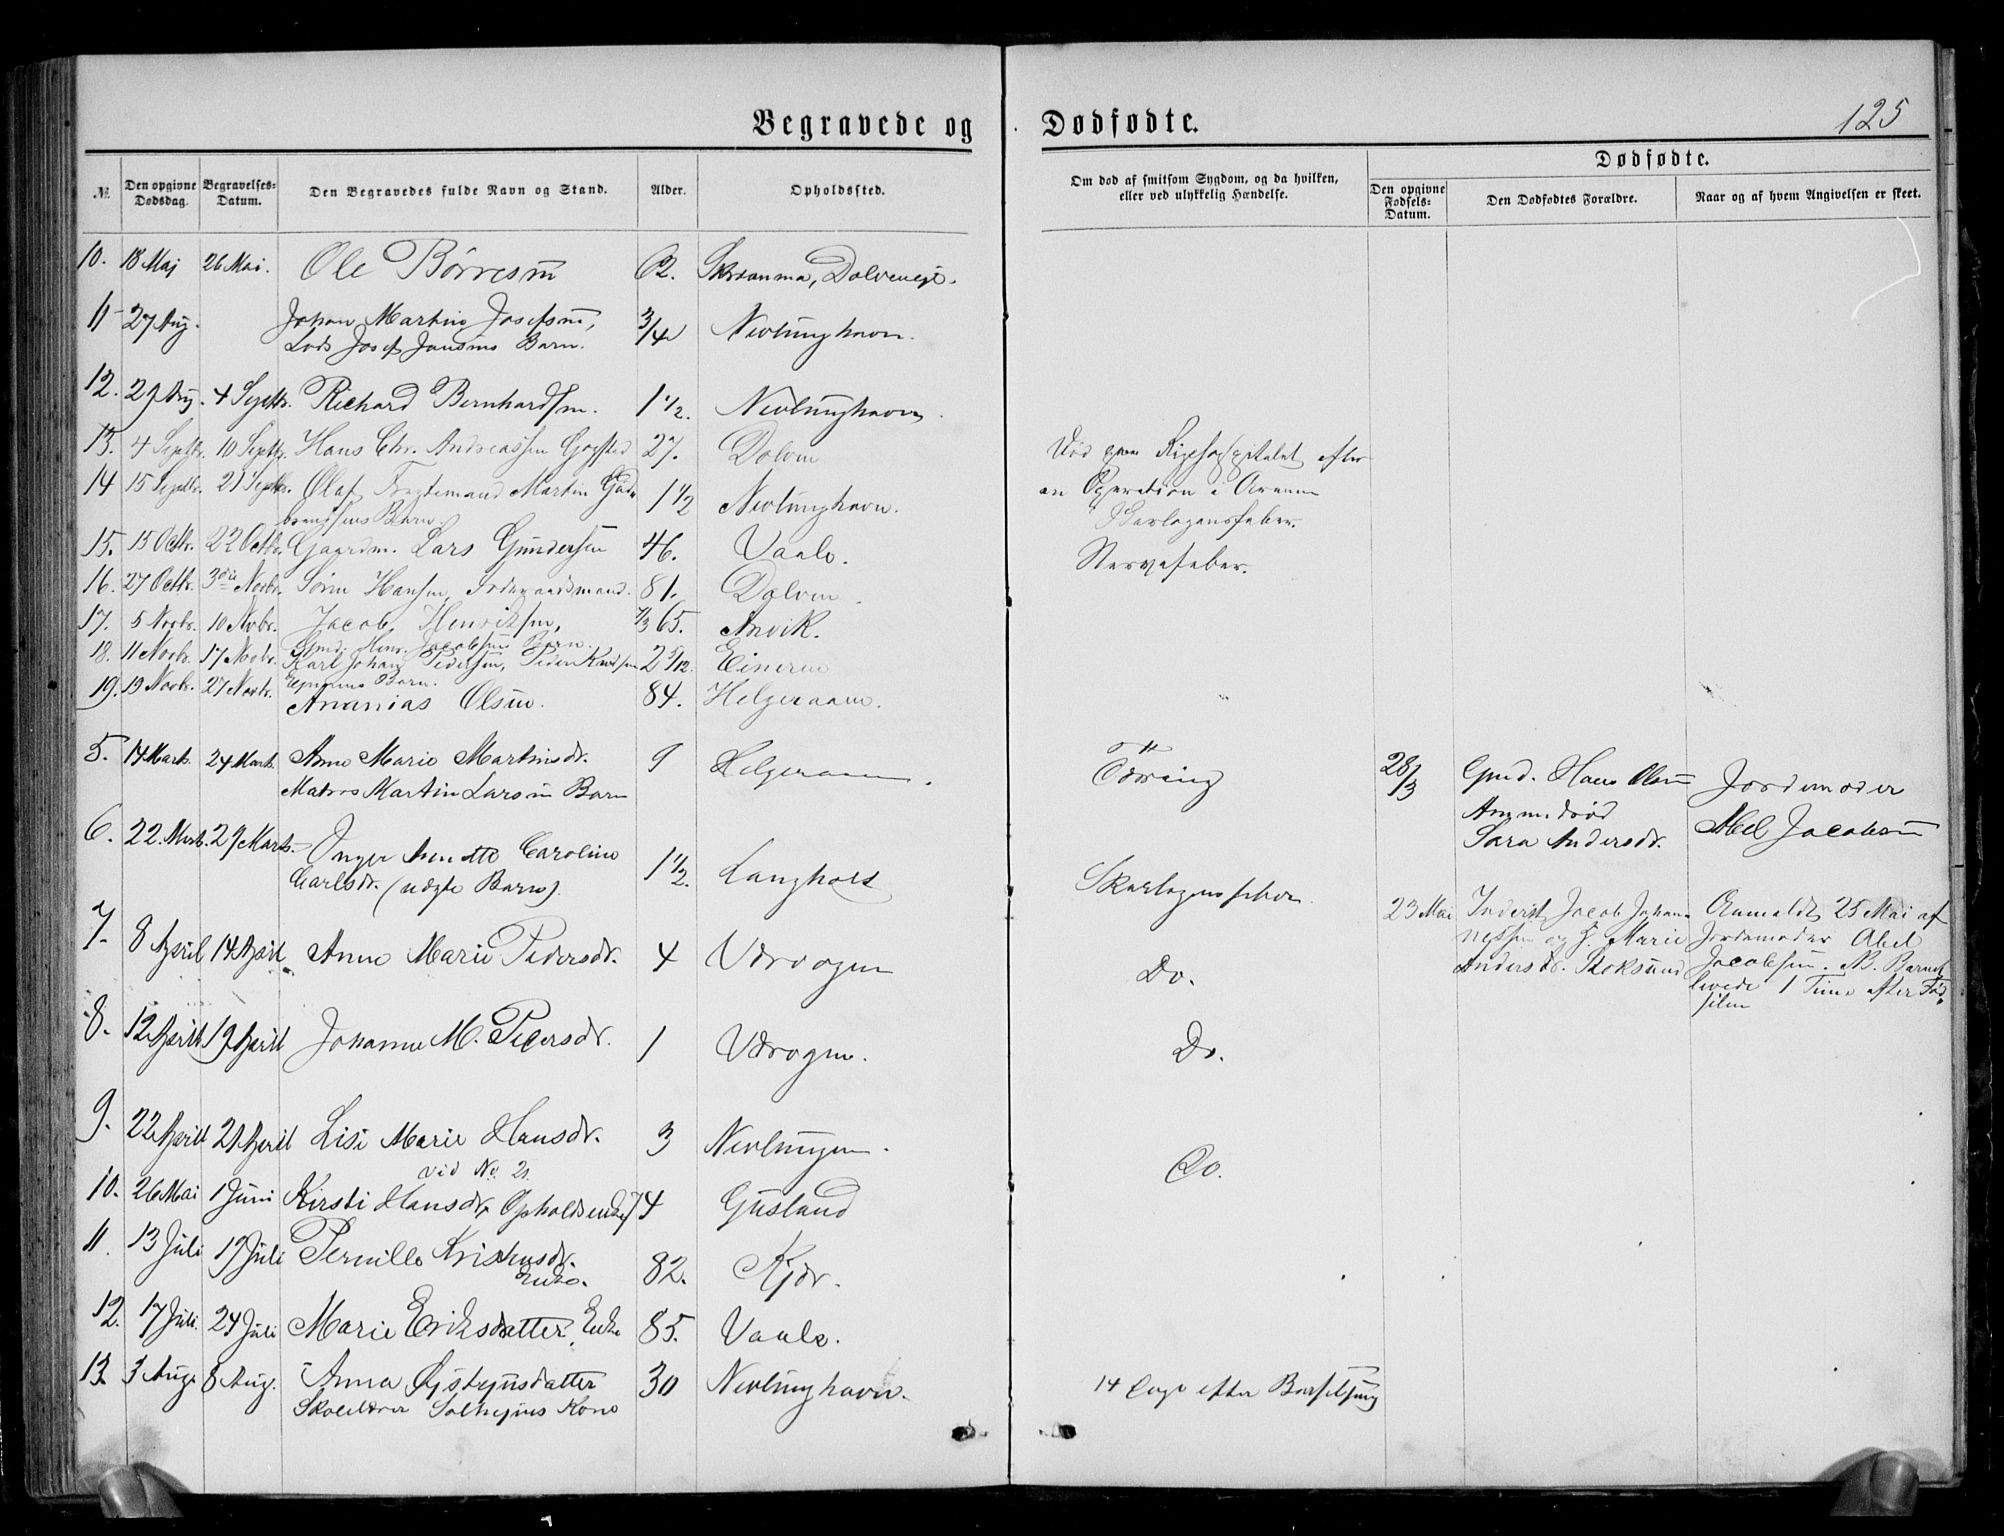 Begravede og Dødfødte. 125
№ Den opgivne Dødsdag. Begravelses-Datum. Den Begravedes fulde Navn og Stand. Alder. Opholdssted. Om død af smitsom Sygdom, og da hvilken, eller ved ulykkelig Hændelse. Dødfødte. Den opgivne Fødsels-Datum. Den Dødfødtes Forældre. Naar og af hvem Angivelsen er skeet.
10. 18 Maj 26 Mai. Ole Børresen 62. Dolveneje.
11 27 Aug. Johan Martin Josefsen, 3/4 Nevlunghavn.
Lods Josef Jansens Barn.
12. 29 Aug. 4 Septbr. Richard Bernhardsen. 1 1/2. Nevlunghavn.
13. 4 Septbr. 10 Septbr. Hans Chr. Andreassen Gogsted 27. Dolven Død paa Rigshospitalet efter
14 15 Septbr. 21 Septbr. Olaf Martin Gud- 1 1/2 Nevlunghavn. en Operation i Armen
brandsens Barn. Skarlagensfeber.
15. 15 Octbr. 22 Octbr. Gaardm. Lars Gundersen 46. Vaale. Nervefeber.
16. 27 Octbr. 3die Novbr. Søren Hansen, 81. Dolven.
17. 5 Novbr. 10 Novbr. Jacob Henriksen, 65. Anvik.
Gmd. Henr. Jacobsens Barn.
18. 11 Novbr. 17 Novbr. Karl Johan Pedersen, Peder Knudsen 2 3/12. Eineren
Barn.
19. 19 Novbr. 27 Novbr. Ananias Olsen. 84. Helgeraaen.
5. 14 Marts. 24 Marts. Anne Marie Martinsdr. 9 Helgeraaen. Tæring 28/3 Gmd. Hans Olsen Jordemoder
Matros Martin Larsens Barn Ammerød Abel Jacobsen
Sara Andersdr.
6. 22 Marts. 29 Marts. Inger Anette Caroline 1 1/2. Langholt Skarlagensfeber
Carlsdr. (uægte Barn). 23 Mai Inderst Jacob Johan- Anmeldt 25 Mai af
nessen og H. Marie Jordemoder Abel
7. 8 April 14 April Anne Marie Pedersdr. 4 Værvagen Do. Andersdr. Roksund Jacobsen. NB. Barnet
levede 1 Time efter Fød-
selen
8. 12 April 19 April Johanne M. Pedersdr. 1 Værvagen. Do.
9. 22 April 29 April Lise Marie Hansdr. 3 Nevlungen. Do.
vid No. 21.
10. 26 Mai 1 Juni Kirsti Hansdr. Opholdsenke 74 Gusland
11. 13 Juli 19 Juli Pernille Kristensdr. 82. Kjær.
Enke.
12. 17 Juli. 24 Juli Marie Eriksdatter, Enke 85. Vaale.
13. 3 Aug. 8 Aug. Anna Gjsthjusdatter 30 Nevlunghavn. 14 Dage efter Barselseng
Skolelærer Kone